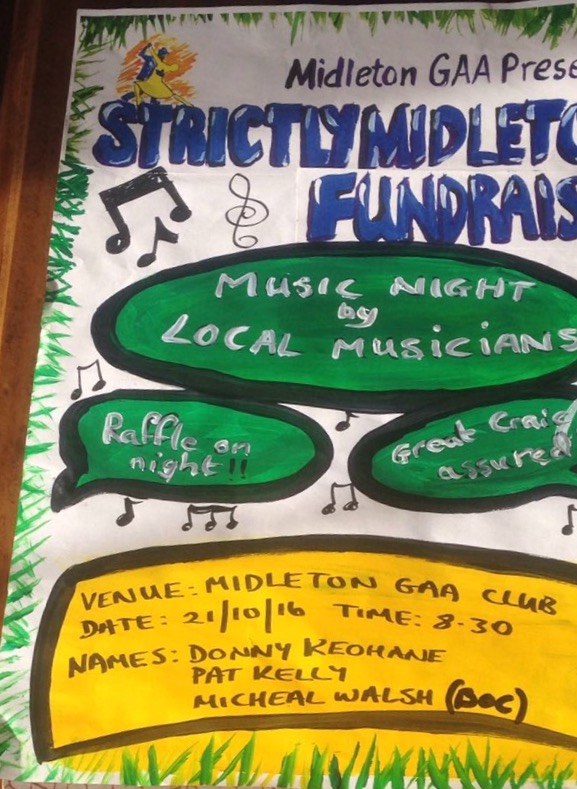 Midleton GAA Prese
STRICTLY MIDLETO
FUNDRAIS
MUSIC NIGHT
by
LOCAL MUSICIANS
Raffle on
night!!
Great Craic
assured
VENUE: MIDLETON GAA CLUB
DATE: 21/10/16 TIME: 8-30
NAMES: DONNY KEOHANE
PAT KELLY
MICHEAL WALSH (DOC)